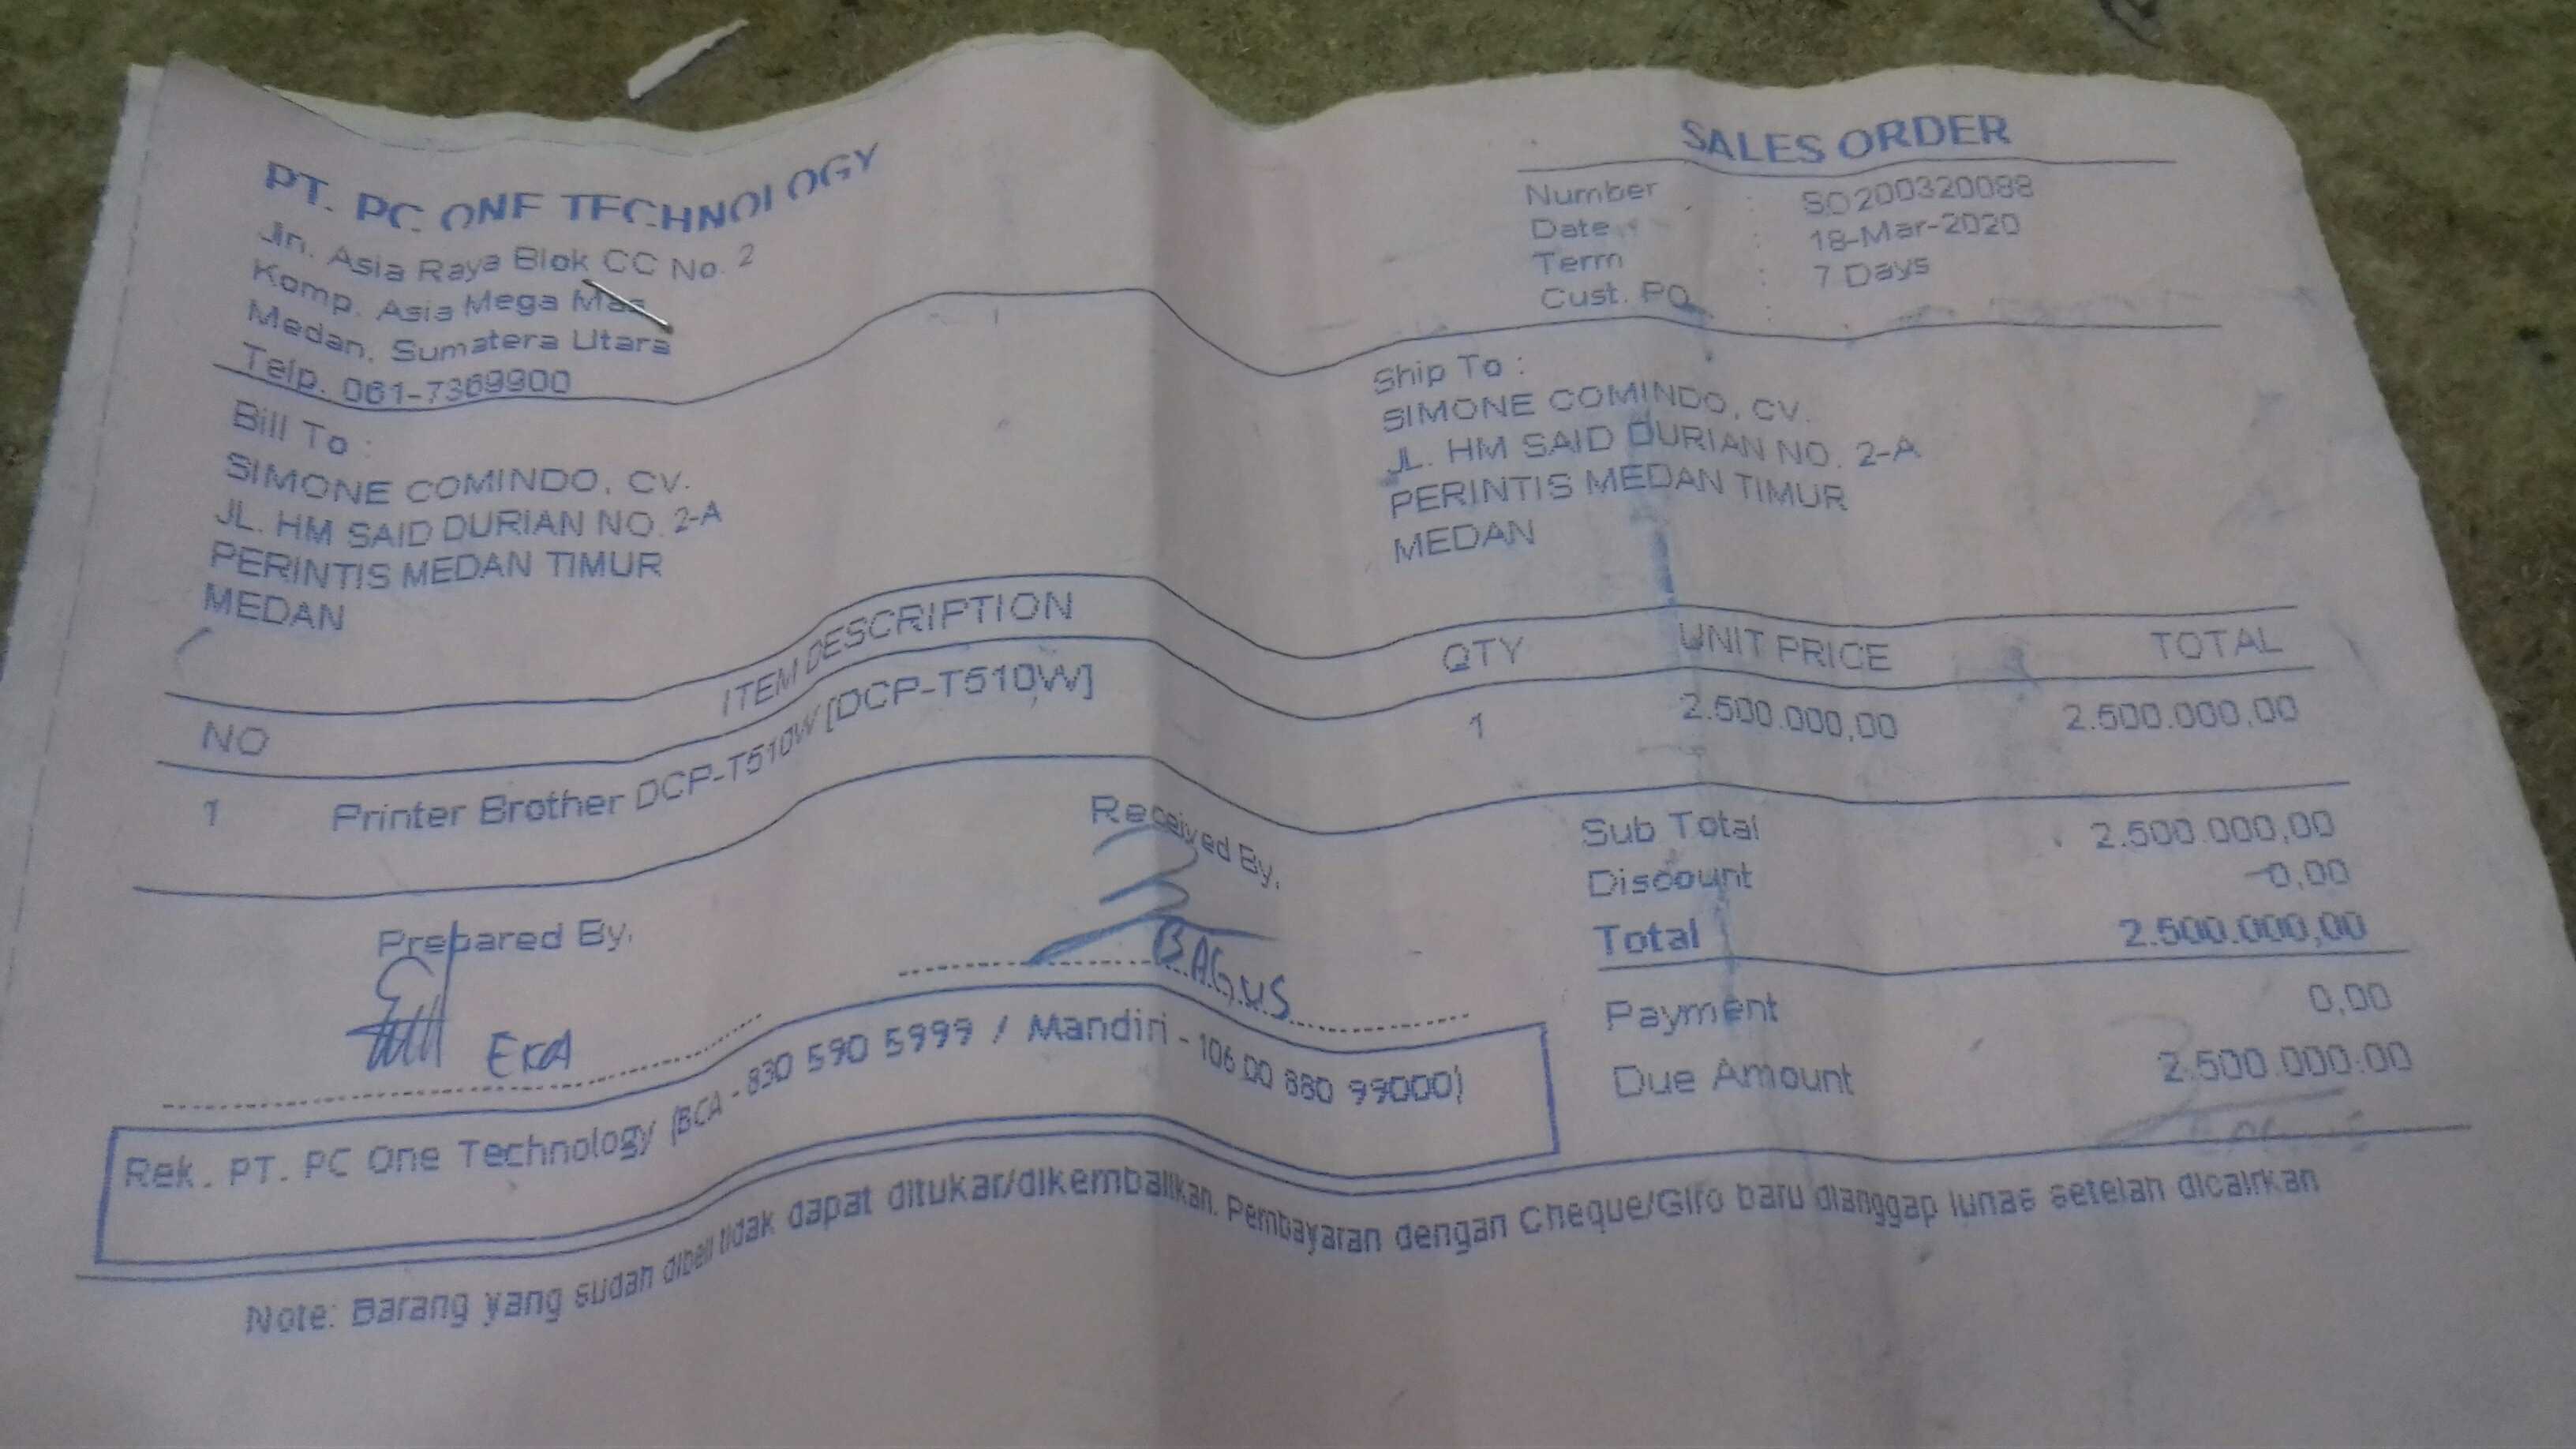 PT. PC ONE TECHNOLOGY
Jln. Asia Raya Blok CC No. 2
Komp. Asia Mega Mas
Medan, Sumatera Utara
Telp. 061-7369900
SALES ORDER
Number : SO200320088
Date : 18-Mar-2020
Term : 7 Days
Cust. PO :
Bill To :
SIMONE COMINDO, CV.
JL. HM SAID DURIAN NO. 2-A
PERINTIS MEDAN TIMUR
MEDAN
Ship To :
SIMONE COMINDO, CV.
JL. HM SAID DURIAN NO. 2-A
PERINTIS MEDAN TIMUR
MEDAN
NO ITEM DESCRIPTION QTY UNIT PRICE TOTAL
1 Printer Brother DCP-T510W [DCP-T510W] 1 2.500.000,00 2.500.000,00
Sub Total 2.500.000,00
Discount 0,00
Total 2.500.000,00
Payment 0,00
Due Amount 2.500.000,00
Prepared By,
EKA
Received By,
BAGUS
Rek. PT. PC One Technology (BCA - 830 590 5999 / Mandiri - 106 00 880 99000)
Note: Barang yang sudah dibeli tidak dapat ditukar/dikembalikan. Pembayaran dengan Cheque/Giro baru dianggap lunas setelah dicairkan